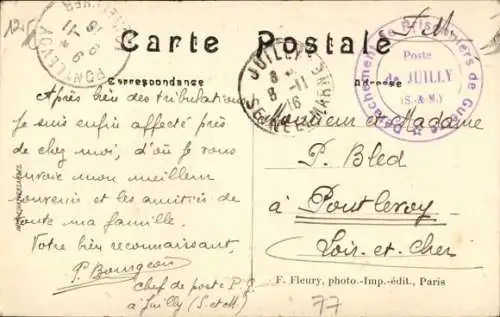 12-5
F.M.
Carte Postale
Correspondance
Adresse
PONTLEVOY
JUILLY
8 -11
16
SEINE ET MARNE
Détachement de Prisonniers de Guerre
Poste
de JUILLY
(S.-& M.)
Après bien des tribulations
Je suis enfin affecté près
de chez moi, d'où je vous
envoie mon meilleur
souvenir et les amitiés de
toute ma famille.
Votre bien reconnaissant,
P. Bourgeois
chef de poste P. G.
à Juilly (S et M)
Monsieur et Madame
P. Bled
à Pontlevoy
Loir-et-Cher
F. Fleury, photo.-Imp.-édit., Paris
77